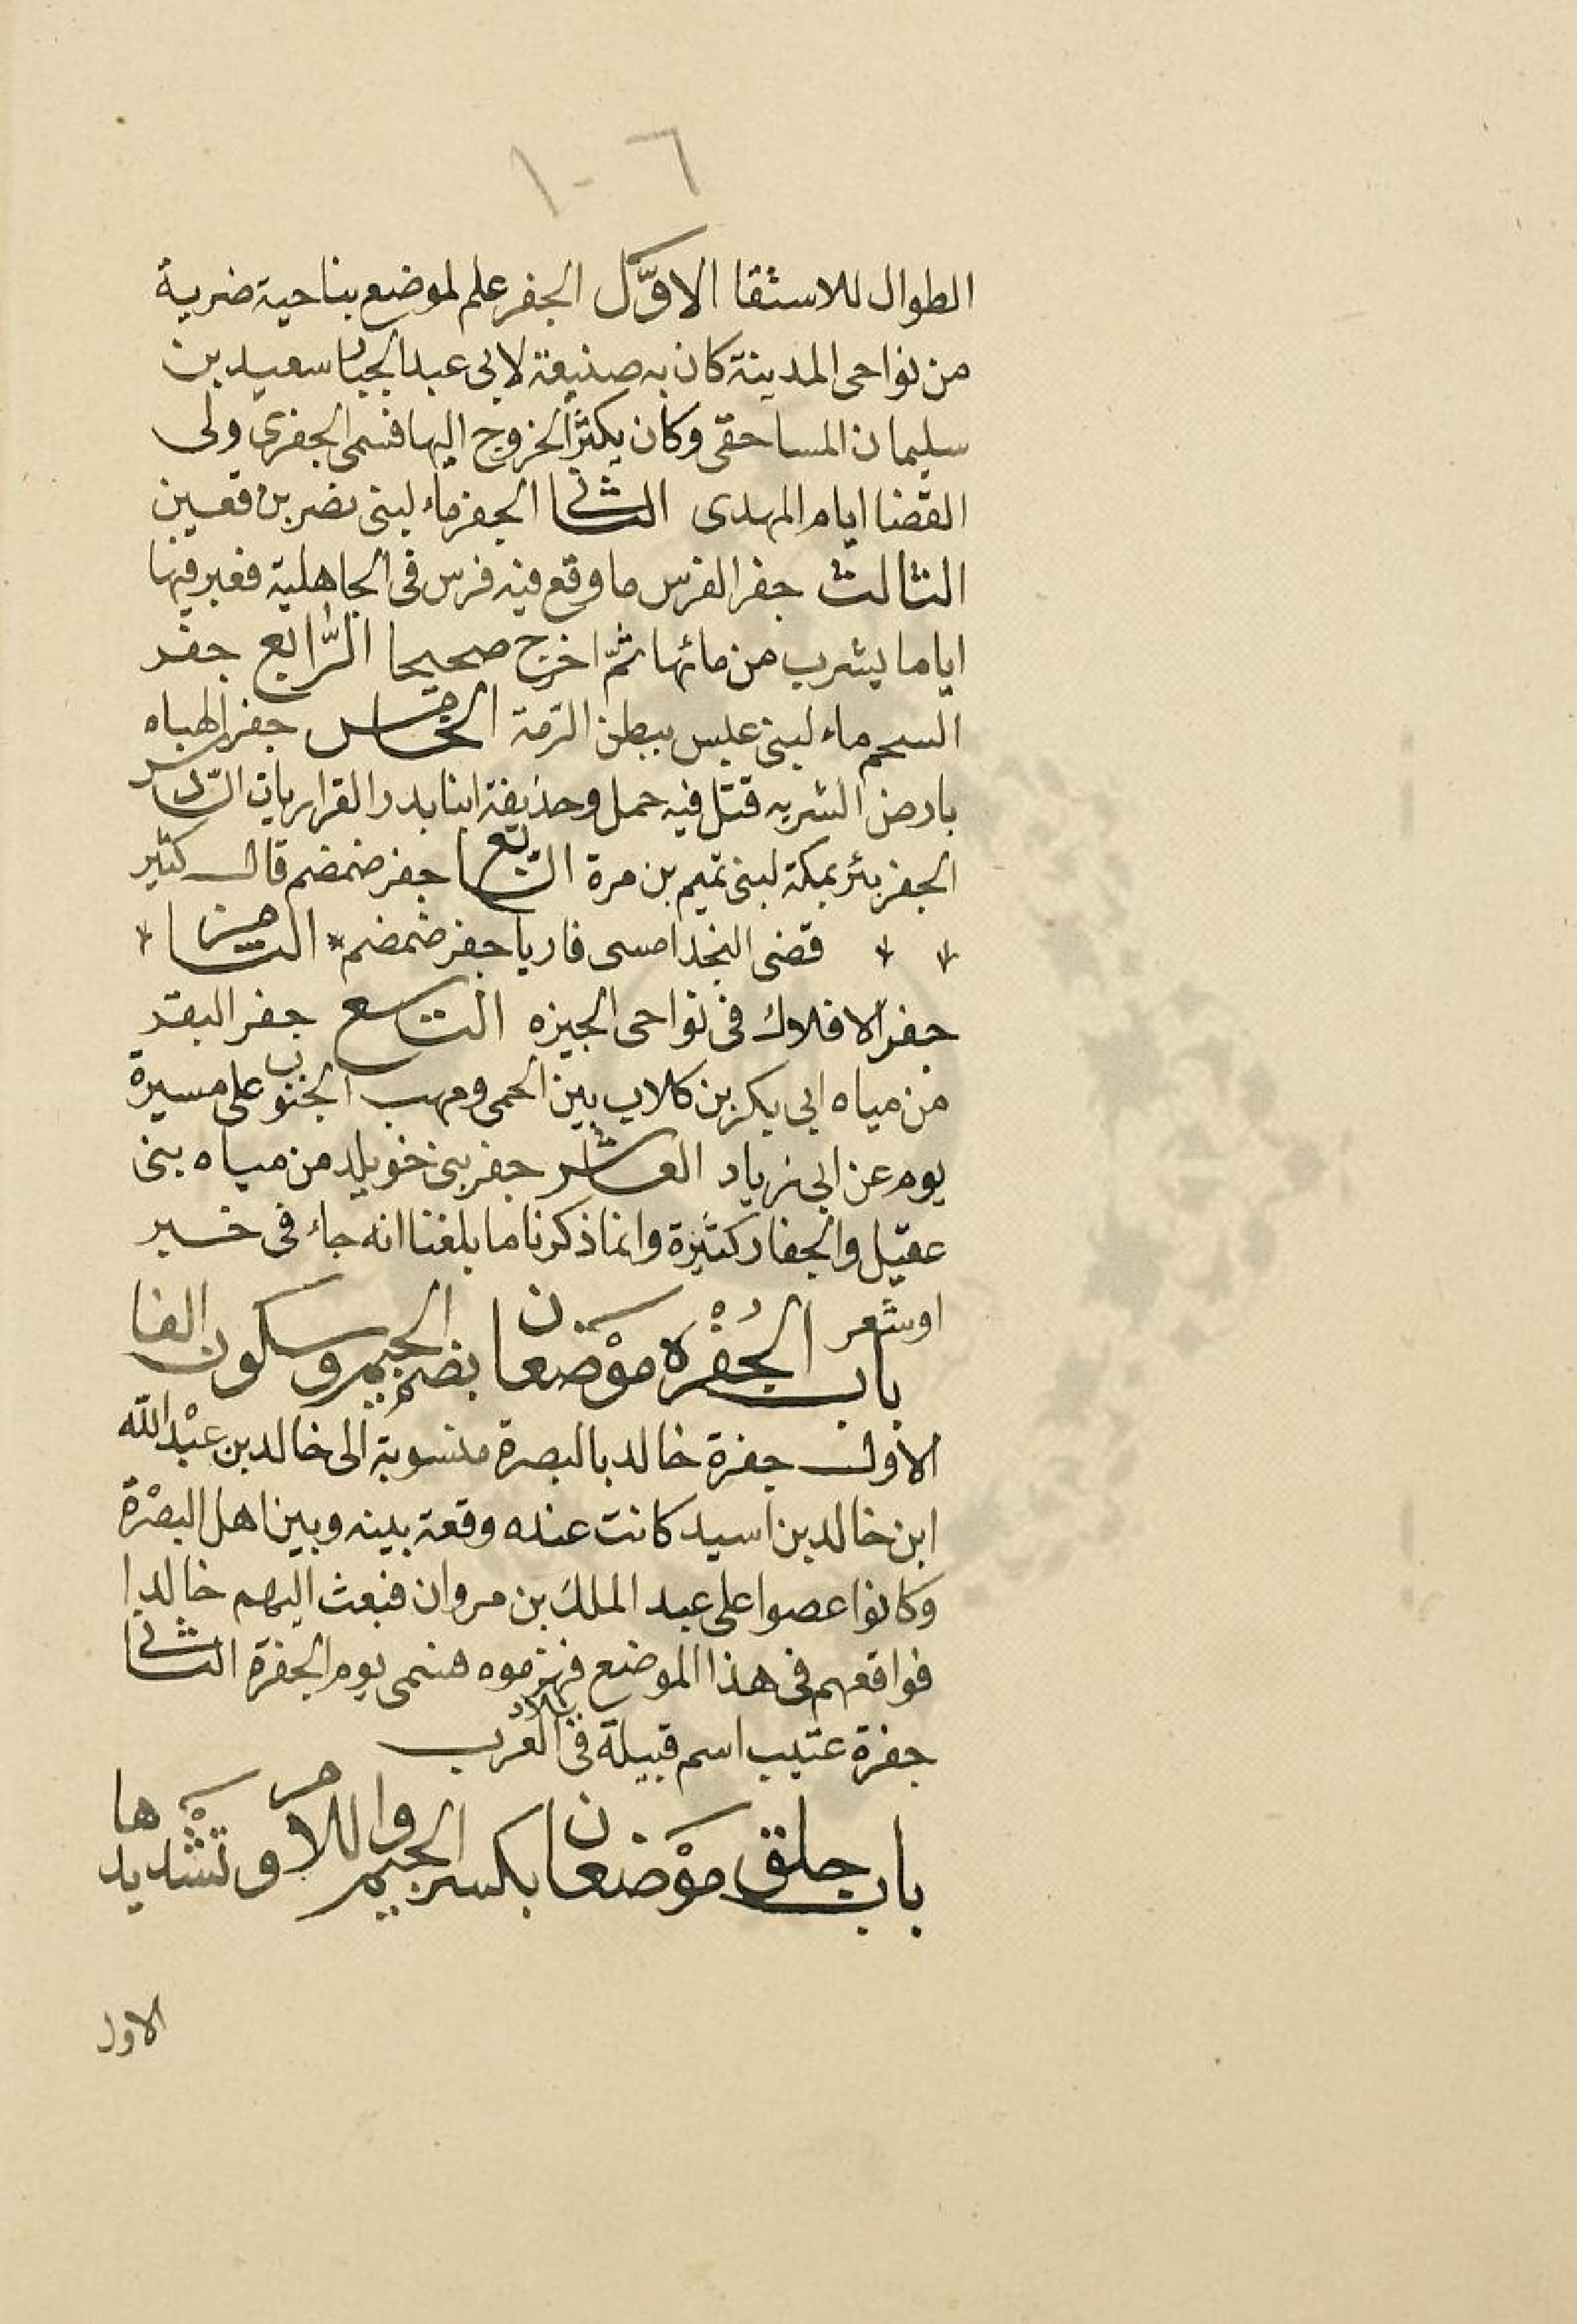 ١٠٦
الطوال للاستقا الاوّل الجفر علم لموضع بناحية ضرية
من نواحى المدينة كان به صنيعة لابى عبد الجبار سعيد بن
سليمان المساحقى وكان يكثر الخروج اليها فسمى الجفرى ولى
القضا ايام المهدى الثانى الجفر ماء لبنى نصر بن قعين
الثالث جفر الفرس ما وقع فيه فرس فى الجاهلية فغبر فيها
اياما يشرب من مائها ثمّ اخرج صحيحا الرّابع جفر
السحم ماء لبنى عبس ببطن الرّمة الخامس جفر الهباه
بارض الشربه قتل فيه حمل وحذيفة ابنا بدر الفزاريان السّادس
الجفر بئر بمكة لبنى تميم بن مرة السّابع جفر ضمضم قال كثير
قضى النجد امسى فاريا جفر ضمضم * الثامن
جفر الافلاك فى نواحى الجيزه التاسع جفر البقر
من مياه ابى بكر بن كلاب بين الحمى ومهب الجنوب على مسيرة
يوم عن ابى زياد العاشر جفر بنى خويلد من مياه بنى
عقيل والجفار كثيرة وانما ذكرنا ما بلغنا انه جاء فى خبر
او شعر
باب الجُفْرَة مَوْضعَان بضم الجيم وسكون الفا
الاول جفرة خالد بالبصرة منسوبة الى خالد بن عبْد اللّه
ابن خالد بن اسيد كانت عنده وقعة بينه وبين اهل البصْرة
وكانوا عصوا على عبد الملك بن مروان فبعث اليهم خالدا
فواقعهم فى هذا الموضع فهزموه فسمى يوم الجفرة الثانى
جفرة عتيب اسم قبيلة فى بلاد العرب
باب جلق مَوْضعَان بكسر الجيم واللام وتشْديدها
الاول